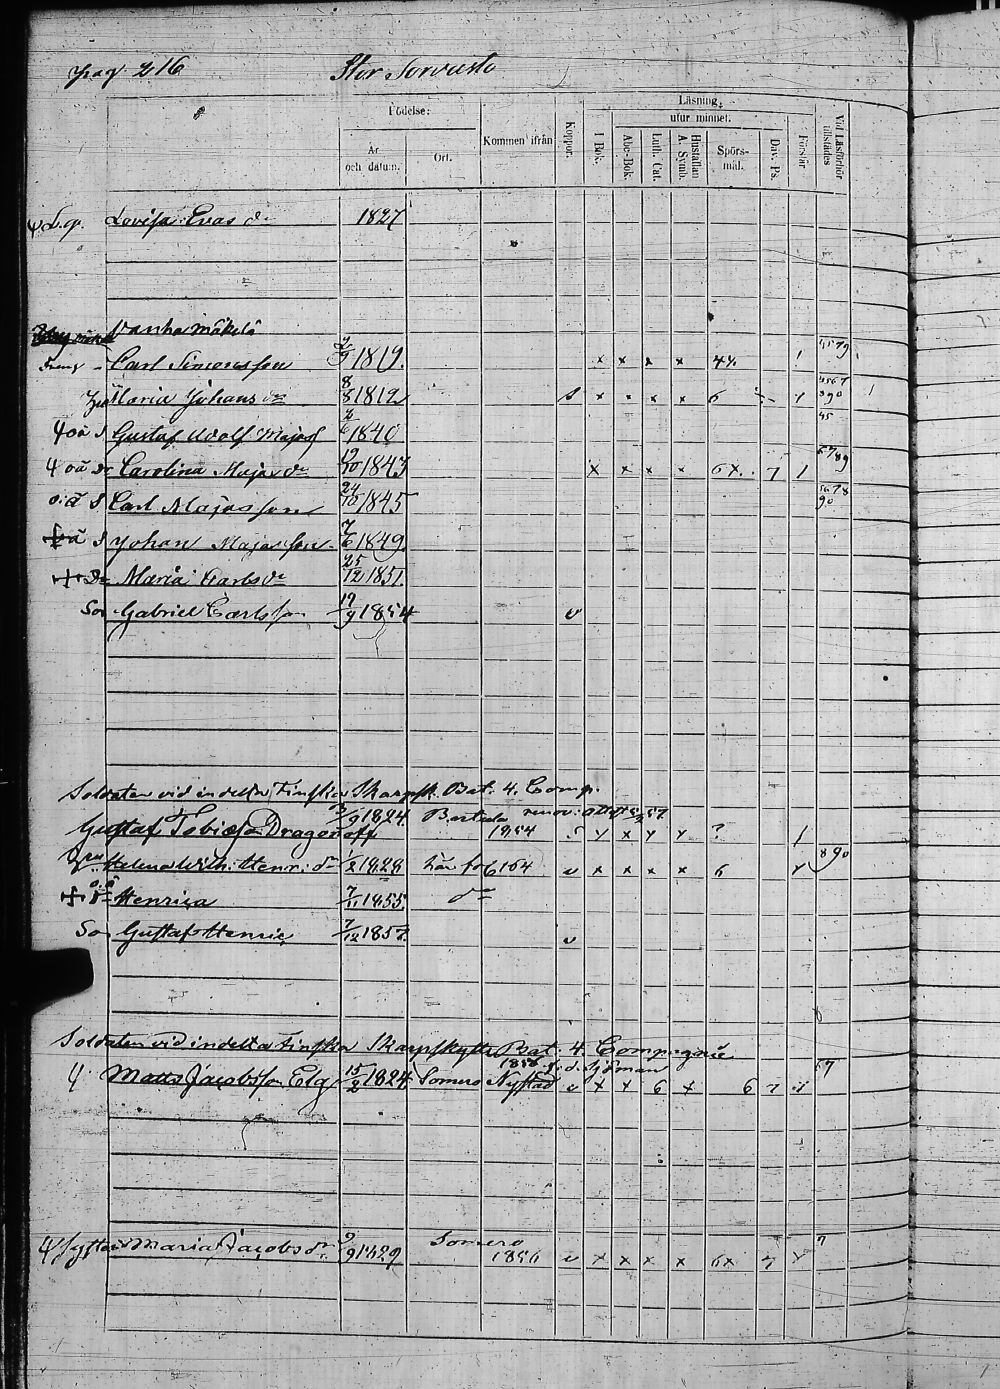 pag 216 Stor Sorvasto
Födelse: Läsning.
utur minnet.
År och datum. Ort. Kommen ifrån Koppor. I Bok. Abc-Bok. Luth. Cat. Hustaflan A. Symb. Spörsmål. Dav. Ps. Förstår Vid Läsförhör tillstädes
L.q. Lovisa Evas dr 1827
Vanhamäkilä
Carl Simonsson 2/9 1819. x x x x 4x. 1 4579
Maria Johans dr 8/8 1812 s x x x x 6 1 4567 890
oä S Gustaf Adolf Majas s 1840 45
oä dr Carolina Majas dr 19/10 1843 x x x x 6x. 7 1 6789
o.ä S Carl Majasson 24/10 1845 5678 90
oä S Johan Majasson 7/6 1849
dr Maria Carls dr 25/12 1851
Son Gabriel Carlsson 19/9 1854 v
Soldaten vid indelta Finska Skarpsk. Bat. 4. Comp.
Gustaf Tobiass. Dragonoff /9 1824. 1854 x ? 1
Helena Wilh. Henr. dr 1/2 1828 här fo 6 104 v x x x x 6 890
o.ä dr Henrica 7/11 1855 dr
Son Gustaf Henric 7/12 1857. v
Soldaten vid indelta Finska Skarpskytte Bat. 4. Compagnie
Matts Jacobsson Elg 15/2 1824 Somero 1858 f.d. Sjöman Nystad v x x 6 x 6 7 57
Maria Jacobs dr 9/9 1829 Somero 1856 v x x x x 6x 7 7